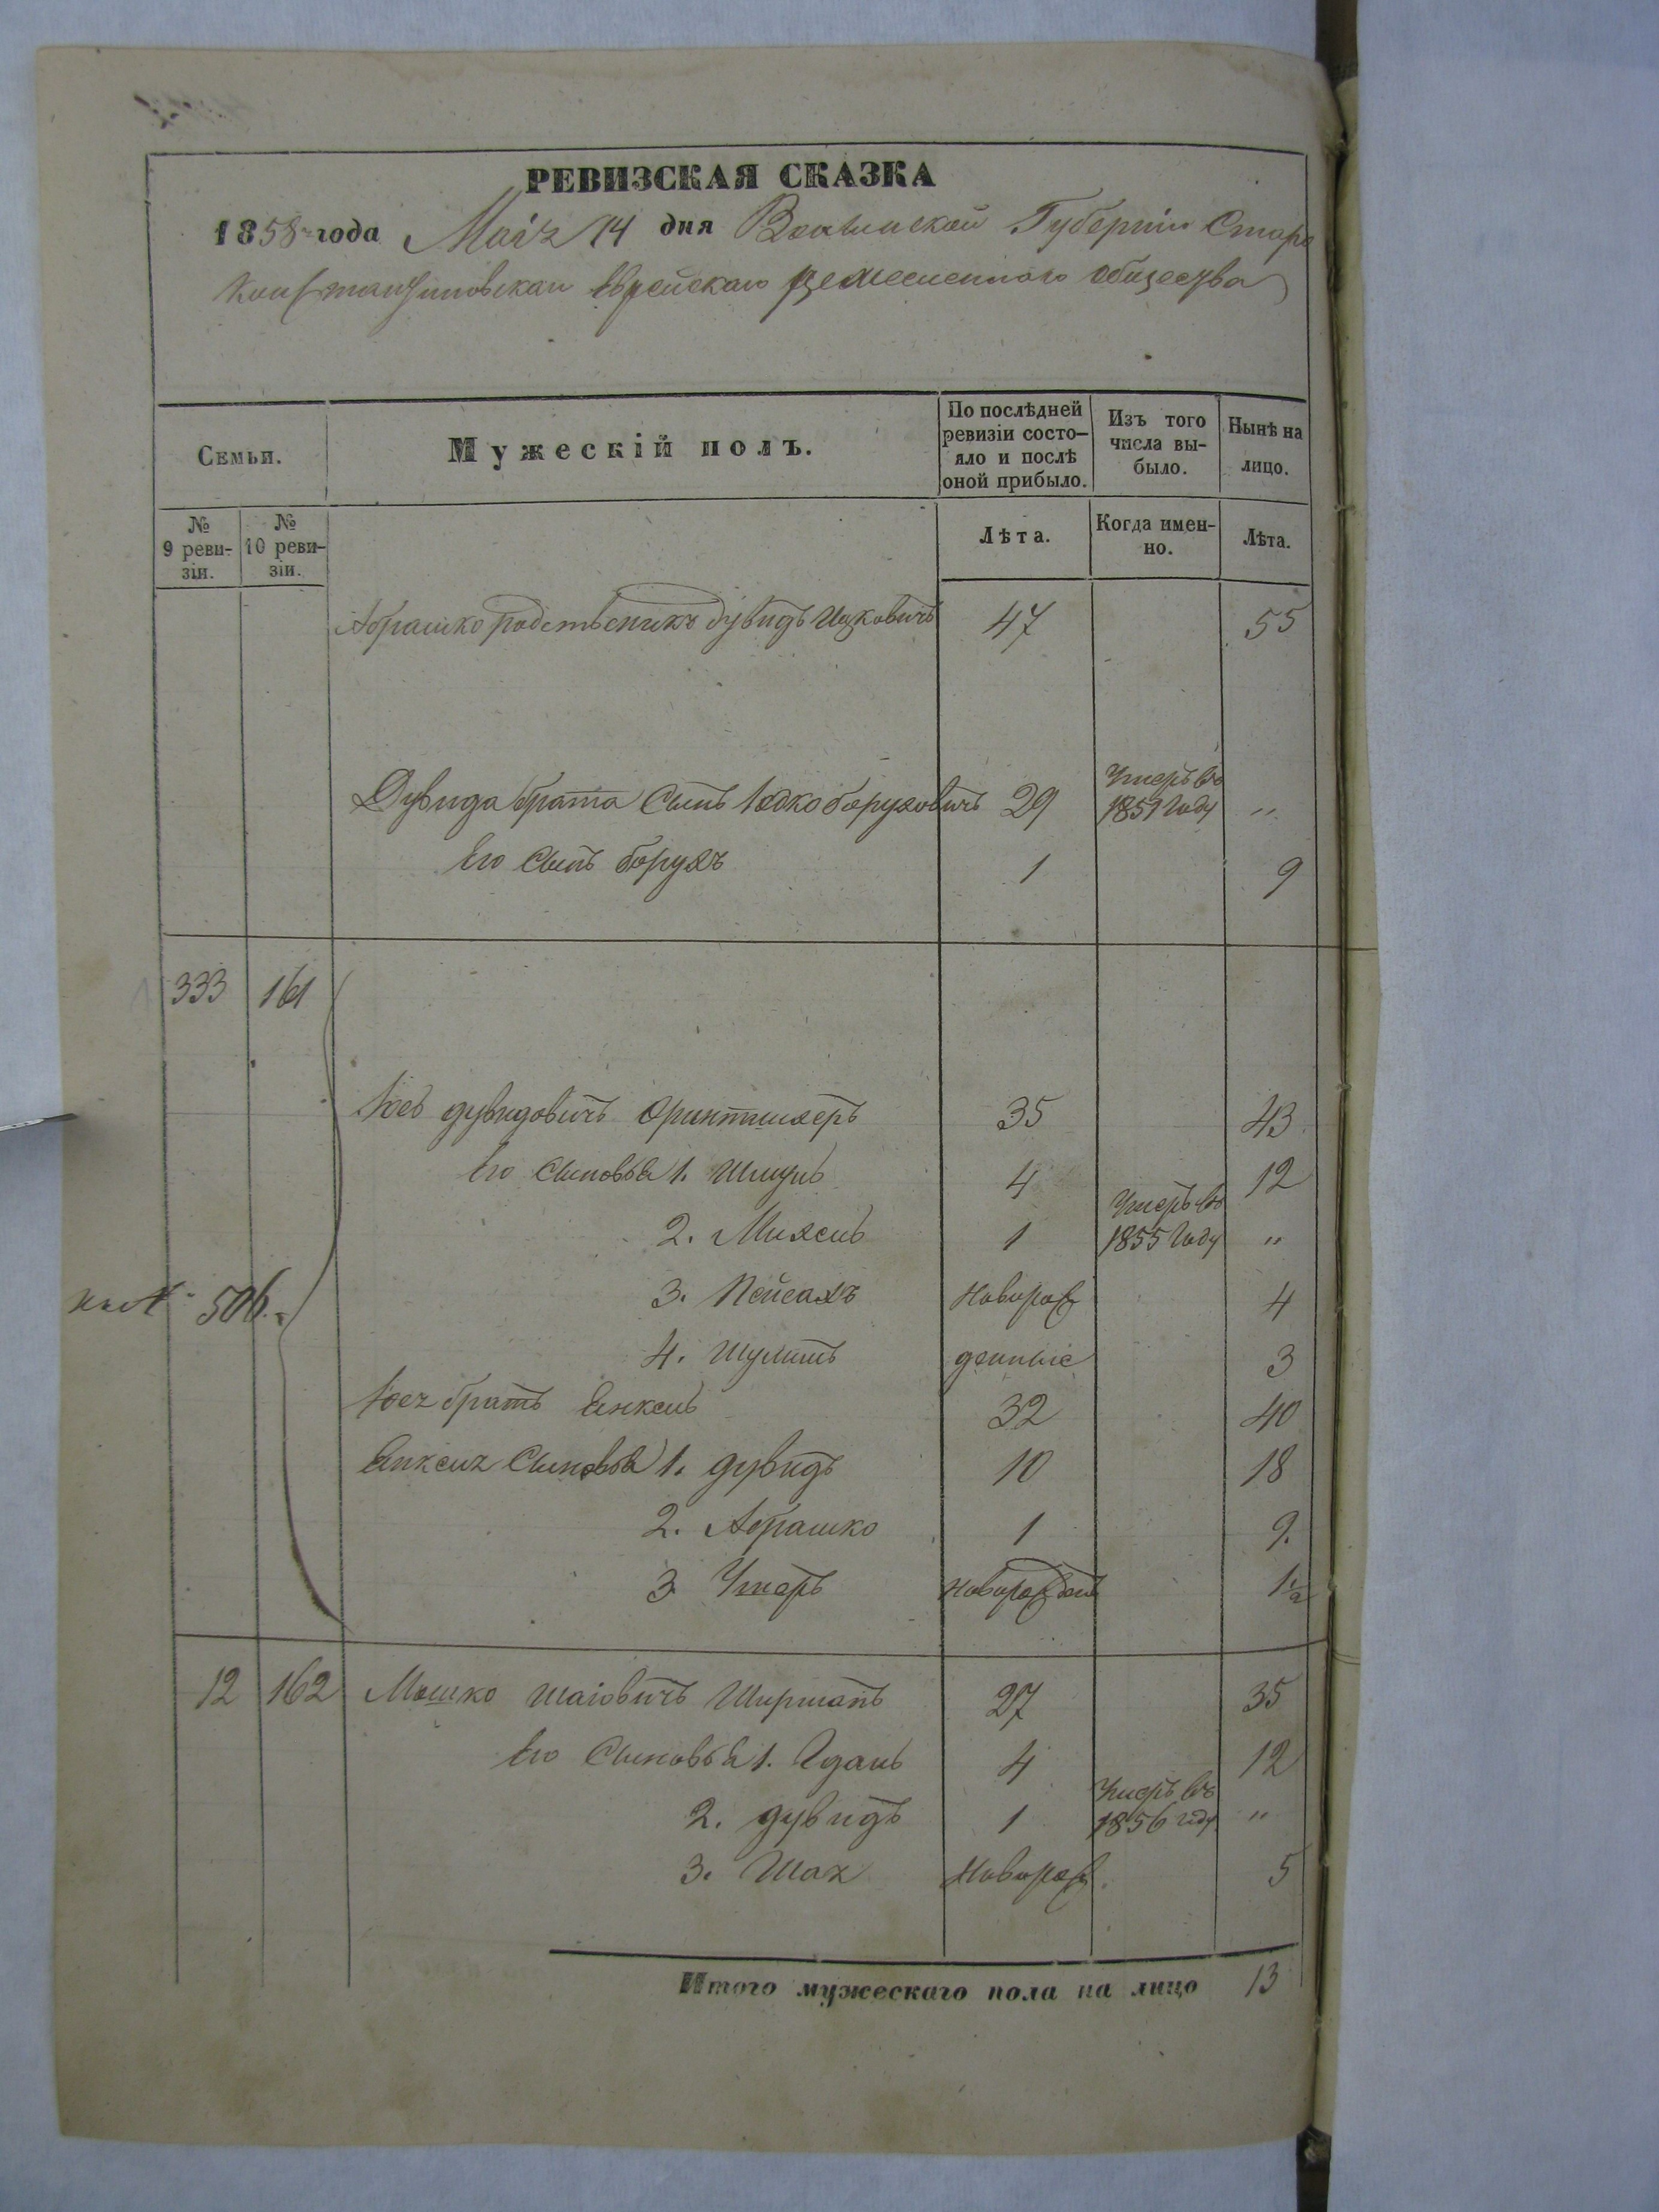 РЕВИЗСКАЯ СКАЗКА
1858 года Маія 14 дня Волынской Губерніи Старо
Константиновскаго Еврейскаго ремесленного общества
Семьи.
Мужескій полъ.
По послѣдней ревизіи состо-яло и послѣ оной прибыло.
Изъ того числа вы-было.
Нынѣ на лицо.
№ 9 реви-зіи.
№ 10 реви-зіи.
Лѣта.
Когда имен-но.
Лѣта.
Абрашко родственникъ Дувидъ Ицковичъ 47 55
Умеръ въ
Дувида брата Сынъ Іодко Боруховичъ 29 1851 Году "
Его Сынъ Борухъ 1 9
333 161
Іось Дувидовичъ Оринтихеръ 35 43
Его Сыновья 1. Шмуль 4 12
Умеръ въ
2. Михель 1 1855 Году "
3. Пейсахъ Новорож 4
506.
4. Шулимъ денные 3
Іося братъ Янкель 32 40
Янкеля Сыновья 1. Дувидъ 10 18
2. Абрашко 1 9.
3 Умеръ Новорожден 1½
12 162 Мошко Шаіовичъ Ширманъ 27 35
Его Сыновья 1. Идаль 4 12
Умеръ въ
2. Дувидъ 1 1856 году "
3. Шая Новорож. 5
Итого мужескаго пола на лицо 13